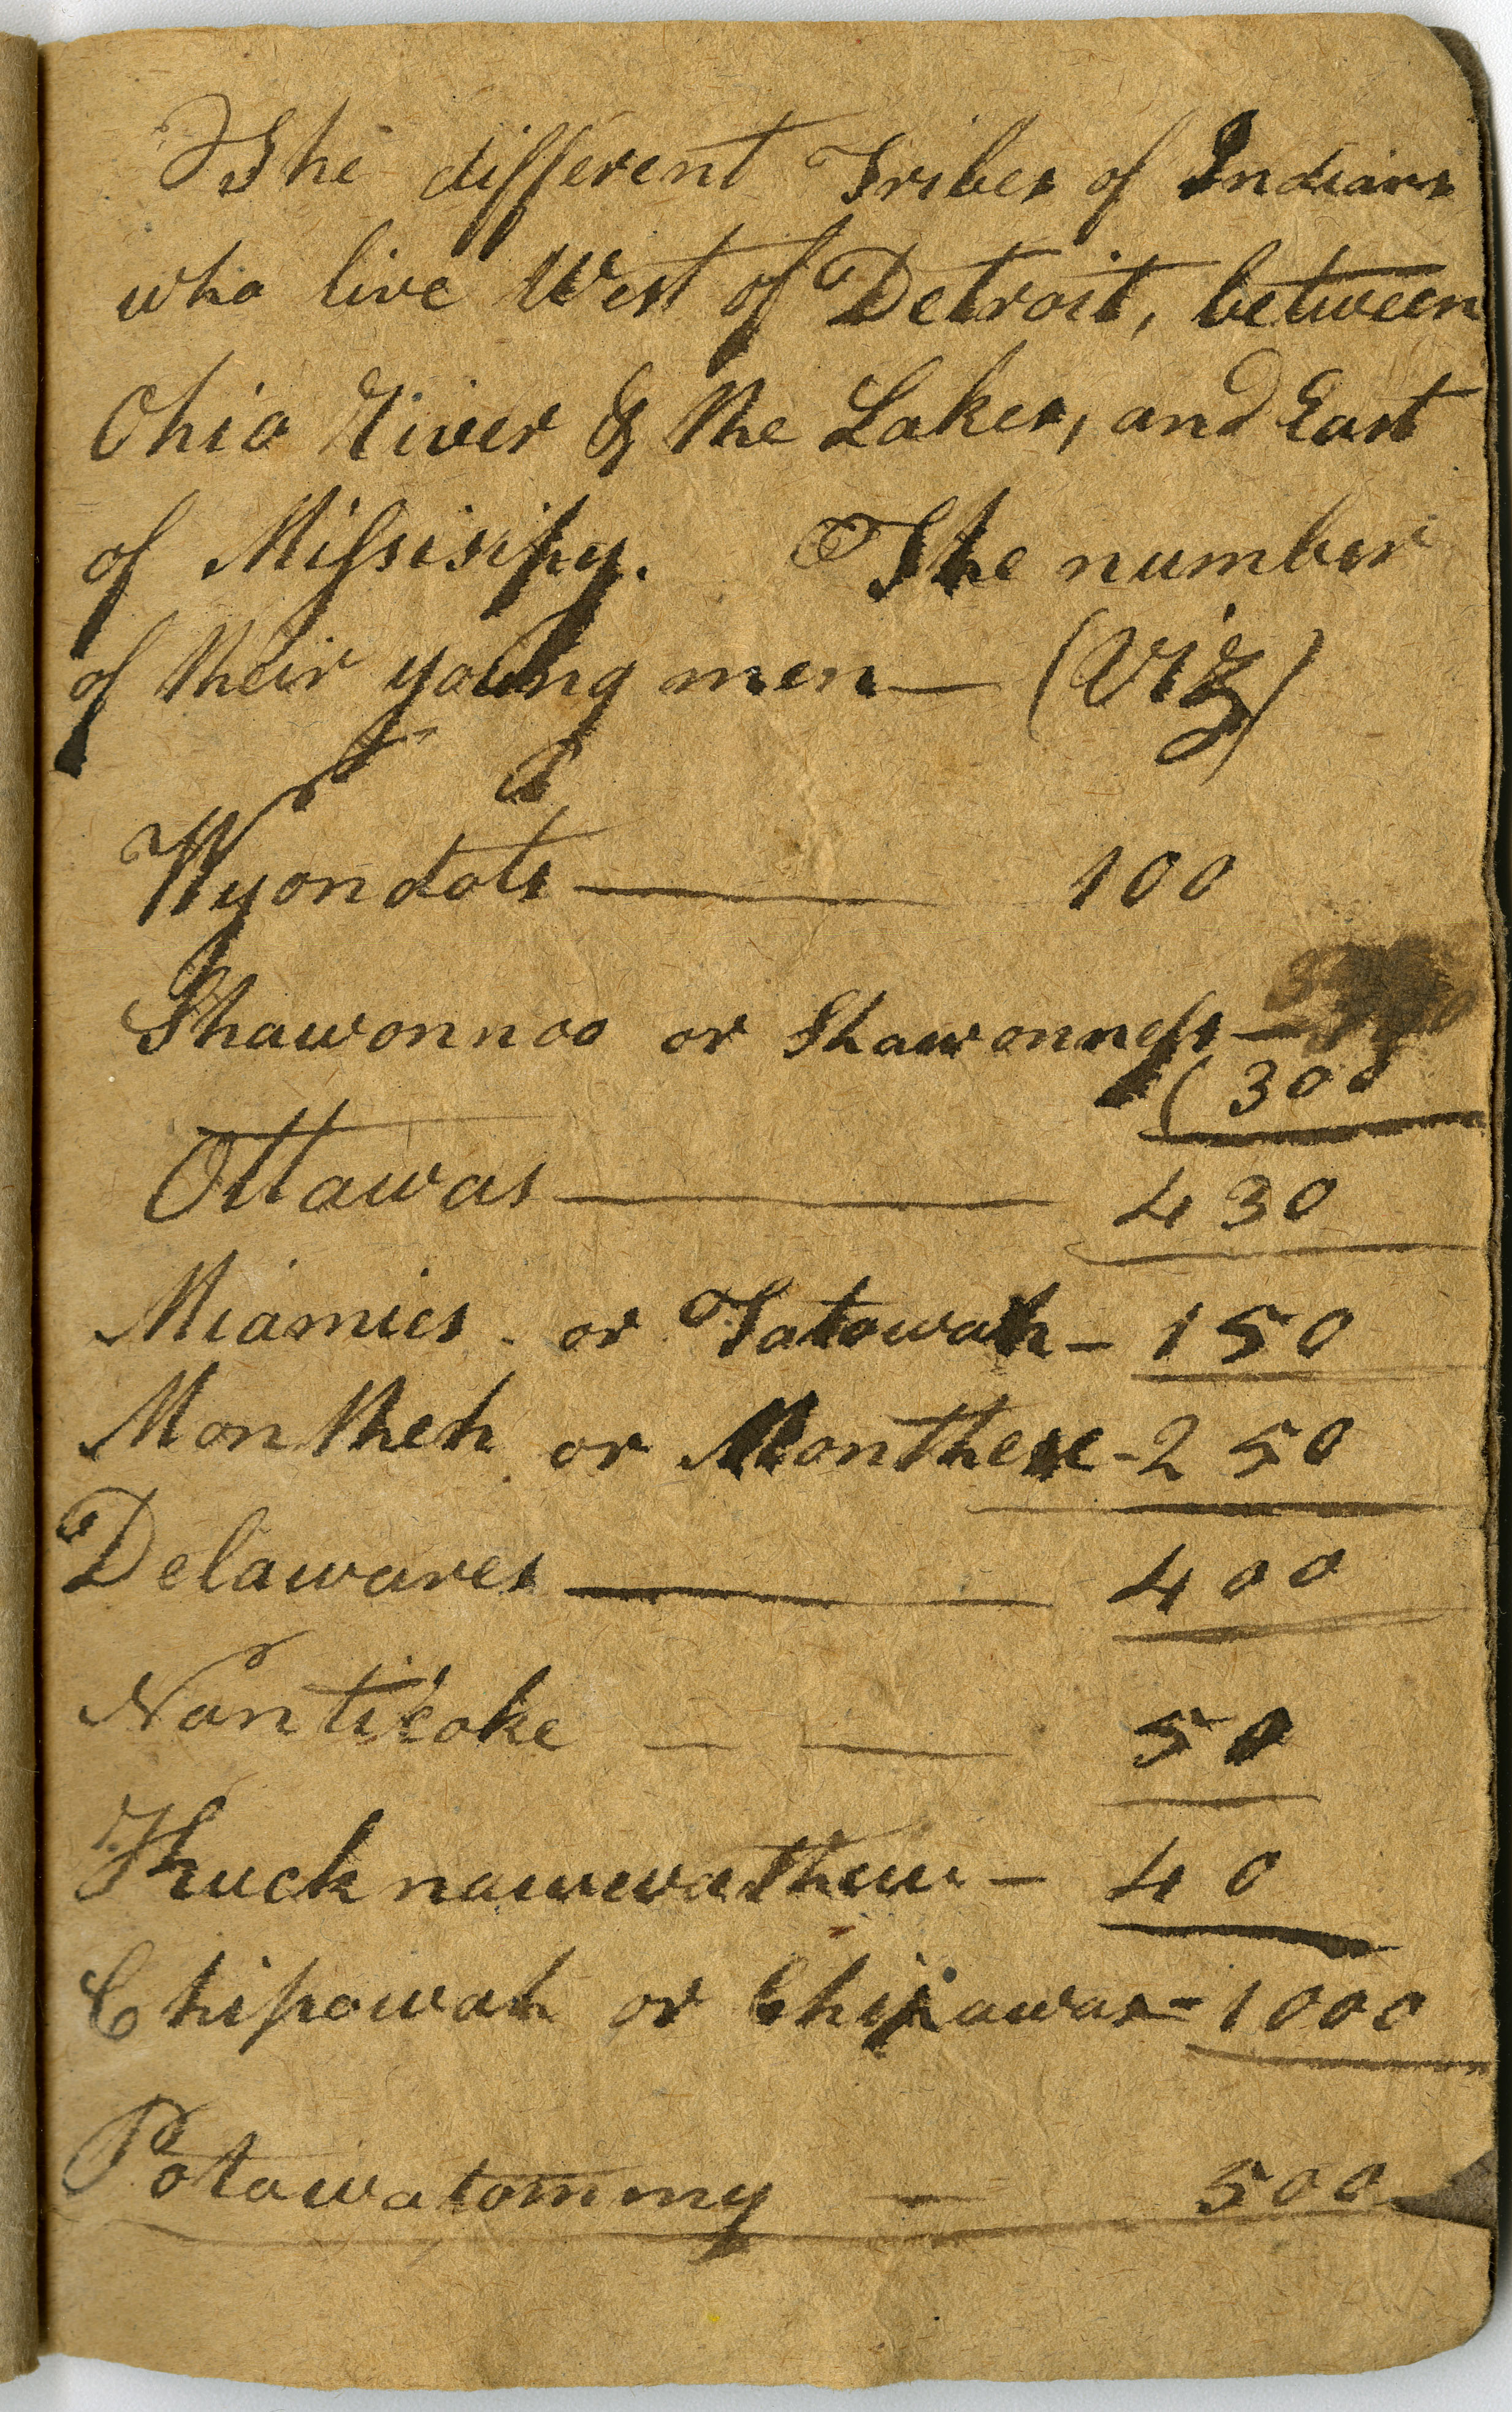 The different Tribes of Indians
who live West of Detroit, between
Ohio River & the Lakes, and East
of Missisipy. The number
of their young men — (Viz)
Wyondots — 100
Shawonnoo or Shawonness —
(300
Ottawas — 430
Miamies or Tatowah — 150
Montheh or Monthese - 250
Delawares — 400
Nanticoke — — 50
— 40
Chipowah or Chipawas = 1000
Potawatommy — 500